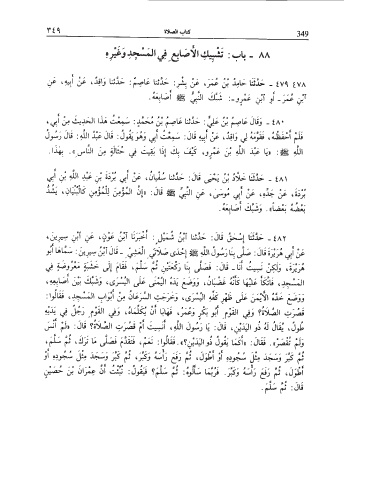 ٣٤٩ كتاب الصلاة 349
٨٨ - باب: تَشْبِيكِ الْأَصَابِعِ فِي الْمَسْجِدِ وَغَيْرِهِ
٤٧٨ ٤٧٩ - حَدَّثَنَا حَامِدُ بْنُ عُمَرَ، عَنْ بِشْرٍ: حَدَّثَنَا عَاصِمٌ: حَدَّثَنَا وَاقِدٌ، عَنْ أَبِيهِ، عَنِ
ابْنِ عُمَرَ - أَوِ ابْنِ عَمْرٍو -: شَبَّكَ النَّبِيُّ ﷺ أَصَابِعَهُ.
٤٨٠ - وَقَالَ عَاصِمُ بْنُ عَلِيٍّ: حَدَّثَنَا عَاصِمُ بْنُ مُحَمَّدٍ: سَمِعْتُ هَذَا الْحَدِيثَ مِنْ أَبِي،
فَلَمْ أَحْفَظْهُ، فَقَوَّمَهُ لِي وَاقِدٌ، عَنْ أَبِيهِ قَالَ: سَمِعْتُ أَبِي وَهُوَ يَقُولُ: قَالَ عَبْدُ اللَّهِ: قَالَ رَسُولُ
اللَّهِ ﷺ: «يَا عَبْدَ اللَّهِ بْنَ عَمْرٍو، كَيْفَ بِكَ إِذَا بَقِيتَ فِي حُثَالَةٍ مِنَ النَّاسِ». بِهَذَا.
٤٨١ - حَدَّثَنَا خَلَّادُ بْنُ يَحْيَى قَالَ: حَدَّثَنَا سُفْيَانُ، عَنْ أَبِي بُرْدَةَ بْنِ عَبْدِ اللَّهِ بْنِ أَبِي
بُرْدَةَ، عَنْ جَدِّهِ، عَنْ أَبِي مُوسَى، عَنِ النَّبِيِّ ﷺ قَالَ: «إِنَّ الْمُؤْمِنَ لِلْمُؤْمِنِ كَالْبُنْيَانِ، يَشُدُّ
بَعْضُهُ بَعْضًا». وَشَبَّكَ أَصَابِعَهُ.
٤٨٢ - حَدَّثَنَا إِسْحَقُ قَالَ: حَدَّثَنَا ابْنُ شُمَيْلٍ: أَخْبَرَنَا ابْنُ عَوْنٍ، عَنِ ابْنِ سِيرِينَ،
عَنْ أَبِي هُرَيْرَةَ قَالَ: صَلَّى بِنَا رَسُولُ اللَّهِ ﷺ إِحْدَى صَلَاتَيِ الْعَشِيِّ - قَالَ ابْنُ سِيرِينَ: سَمَّاهَا أَبُو
هُرَيْرَةَ، وَلَكِنْ نَسِيتُ أَنَا - قَالَ: فَصَلَّى بِنَا رَكْعَتَيْنِ ثُمَّ سَلَّمَ، فَقَامَ إِلَى خَشَبَةٍ مَعْرُوضَةٍ فِي
الْمَسْجِدِ، فَاتَّكَأَ عَلَيْهَا كَأَنَّهُ غَضْبَانُ، وَوَضَعَ يَدَهُ الْيُمْنَى عَلَى الْيُسْرَى، وَشَبَّكَ بَيْنَ أَصَابِعِهِ،
وَوَضَعَ خَدَّهُ الْأَيْمَنَ عَلَى ظَهْرِ كَفِّهِ الْيُسْرَى، وَخَرَجَتِ السَّرَعَانُ مِنْ أَبْوَابِ الْمَسْجِدِ، فَقَالُوا:
قَصُرَتِ الصَّلَاةُ؟ وَفِي الْقَوْمِ أَبُو بَكْرٍ وَعُمَرُ، فَهَابَا أَنْ يُكَلِّمَاهُ، وَفِي الْقَوْمِ رَجُلٌ فِي يَدَيْهِ
طُولٌ، يُقَالُ لَهُ ذُو الْيَدَيْنِ، قَالَ: يَا رَسُولَ اللَّهِ، أَنَسِيتَ أَمْ قَصُرَتِ الصَّلَاةُ؟ قَالَ: «لَمْ أَنْسَ
وَلَمْ تُقْصَرْ». فَقَالَ: «أَكَمَا يَقُولُ ذُو الْيَدَيْنِ؟». فَقَالُوا: نَعَمْ، فَتَقَدَّمَ فَصَلَّى مَا تَرَكَ، ثُمَّ سَلَّمَ،
ثُمَّ كَبَّرَ وَسَجَدَ مِثْلَ سُجُودِهِ أَوْ أَطْوَلَ، ثُمَّ رَفَعَ رَأْسَهُ وَكَبَّرَ، ثُمَّ كَبَّرَ وَسَجَدَ مِثْلَ سُجُودِهِ أَوْ
أَطْوَلَ، ثُمَّ رَفَعَ رَأْسَهُ وَكَبَّرَ. فَرُبَّمَا سَأَلُوهُ: ثُمَّ سَلَّمَ؟ فَيَقُولُ: نُبِّئْتُ أَنَّ عِمْرَانَ بْنَ حُصَيْنٍ
قَالَ: ثُمَّ سَلَّمَ.